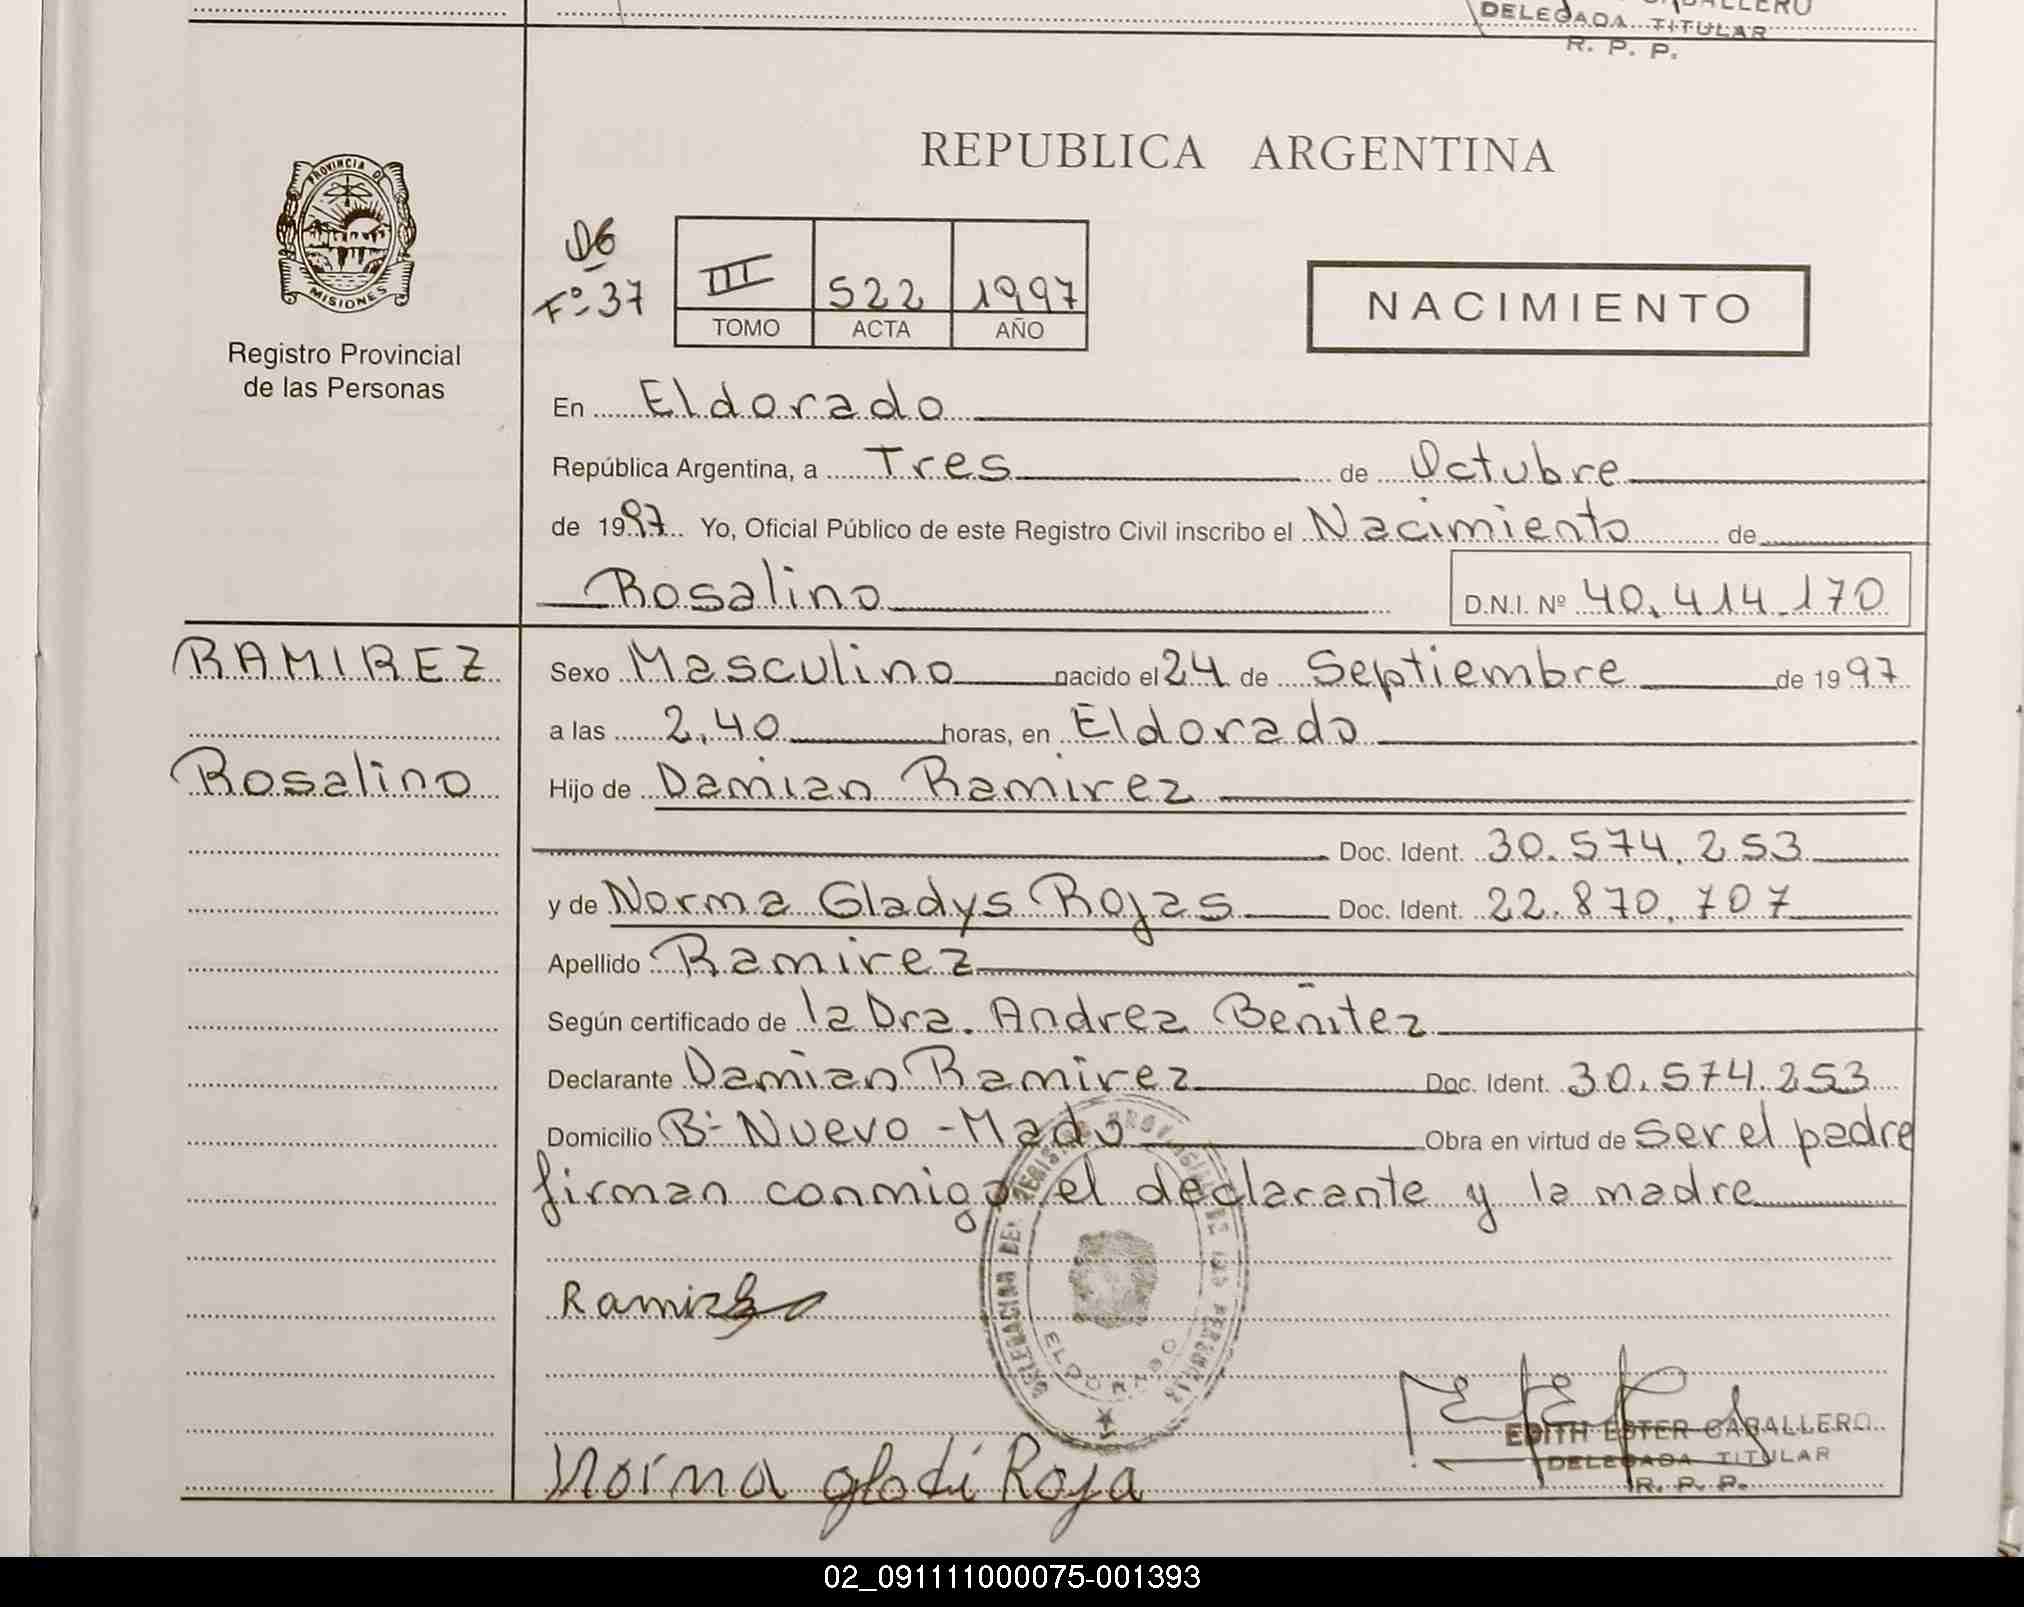 CABALLERO
DELEGADA TITULAR
R. P. P.
PROVINCIA DE
MISIONES
Registro Provincial
de las Personas
REPUBLICA ARGENTINA
Fº 37
III 522 1997
TOMO ACTA AÑO
NACIMIENTO
En Eldorado
República Argentina, a Tres de Octubre
de 1997 Yo, Oficial Público de este Registro Civil inscribo el Nacimiento de
Rosalino D.N.I. Nº 40.414.170
RAMIREZ
Rosalino
Sexo Masculino nacido el 24 de Septiembre de 1997
a las 2,40 horas, en Eldorado
Hijo de Damian Ramirez
Doc. Ident. 30.574.253
y de Norma Gladys Rojas Doc. Ident. 22.870.707
Apellido Ramirez
Según certificado de la Dra. Andrea Benitez
Declarante Damian Ramirez Doc. Ident. 30.574.253
Domicilio Bº Nuevo - Mado Obra en virtud de ser el padre
firman conmigo el declarante y la madre
DELEGACION DEL REGISTRO PROVINCIAL DE LAS PERSONAS
ELDORADO
Ramirez
EDITH ESTER CABALLERO
DELEGADA TITULAR
R. P. P.
Norma gladi Roja
02_091111000075-001393